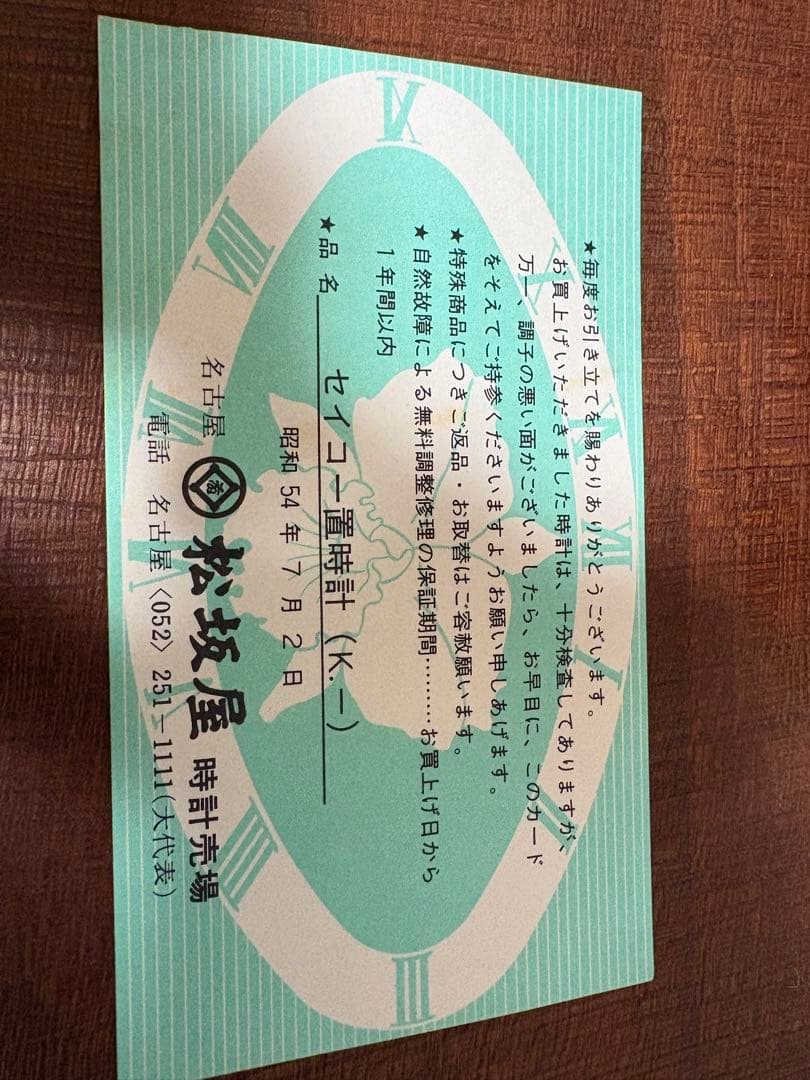 ★毎度お引き立てを賜わりありがとうございます。
お買上げいただきました時計は、十分検査してありますが、
万一、調子の悪い面がございましたら、お早目に、このカード
をそえてご持参くださいますようお願い申しあげます。
★特殊商品につきご返品・お取替はご容赦願います。
★自然故障による無料調整修理の保証期間………お買上げ日から
1年間以内
★品 名 セイコー置時計（K.ー）
昭和 54 年 7 月 2 日
名古屋 松坂屋 時計売場
電話 名古屋〈052〉251-1111(大代表)
XII
I
II
III
IIII
V
VI
VII
VIII
IX
X
XI